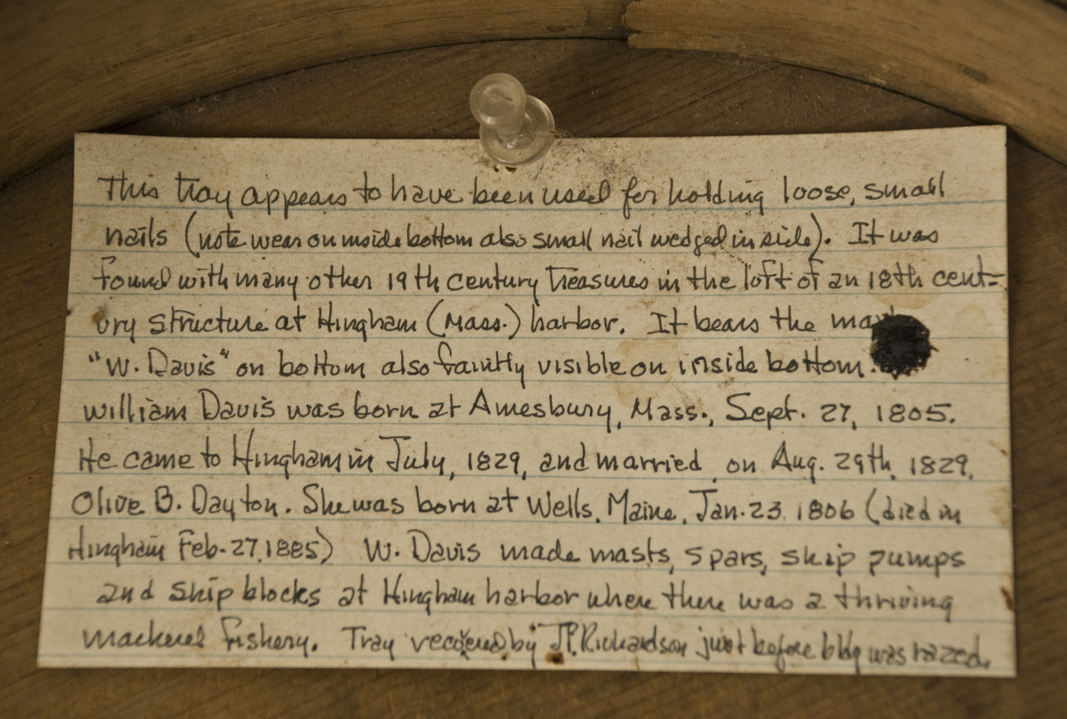 This tray appears to have been used for holding loose, small
nails (note wear on inside bottom also small nail wedged in side). It was
found with many other 19th century treasures in the loft of an 18th cent-
ury structure at Hingham (Mass.) harbor. It bears the
"W. Davis" on bottom also faintly visible on inside bottom.
William Davis was born at Amesbury, Mass., Sept. 27, 1805.
He came to Hingham in July, 1829, and married on Aug. 29th, 1829,
Olive B. Dayton. She was born at Wells, Maine, Jan. 23, 1806 (died in
Hingham Feb. 27, 1885) W. Davis made masts, spars, ship pumps
and ship blocks at Hingham harbor where there was a thriving
mackerel fishery. Tray recovered by Richardson just before bldg was razed.